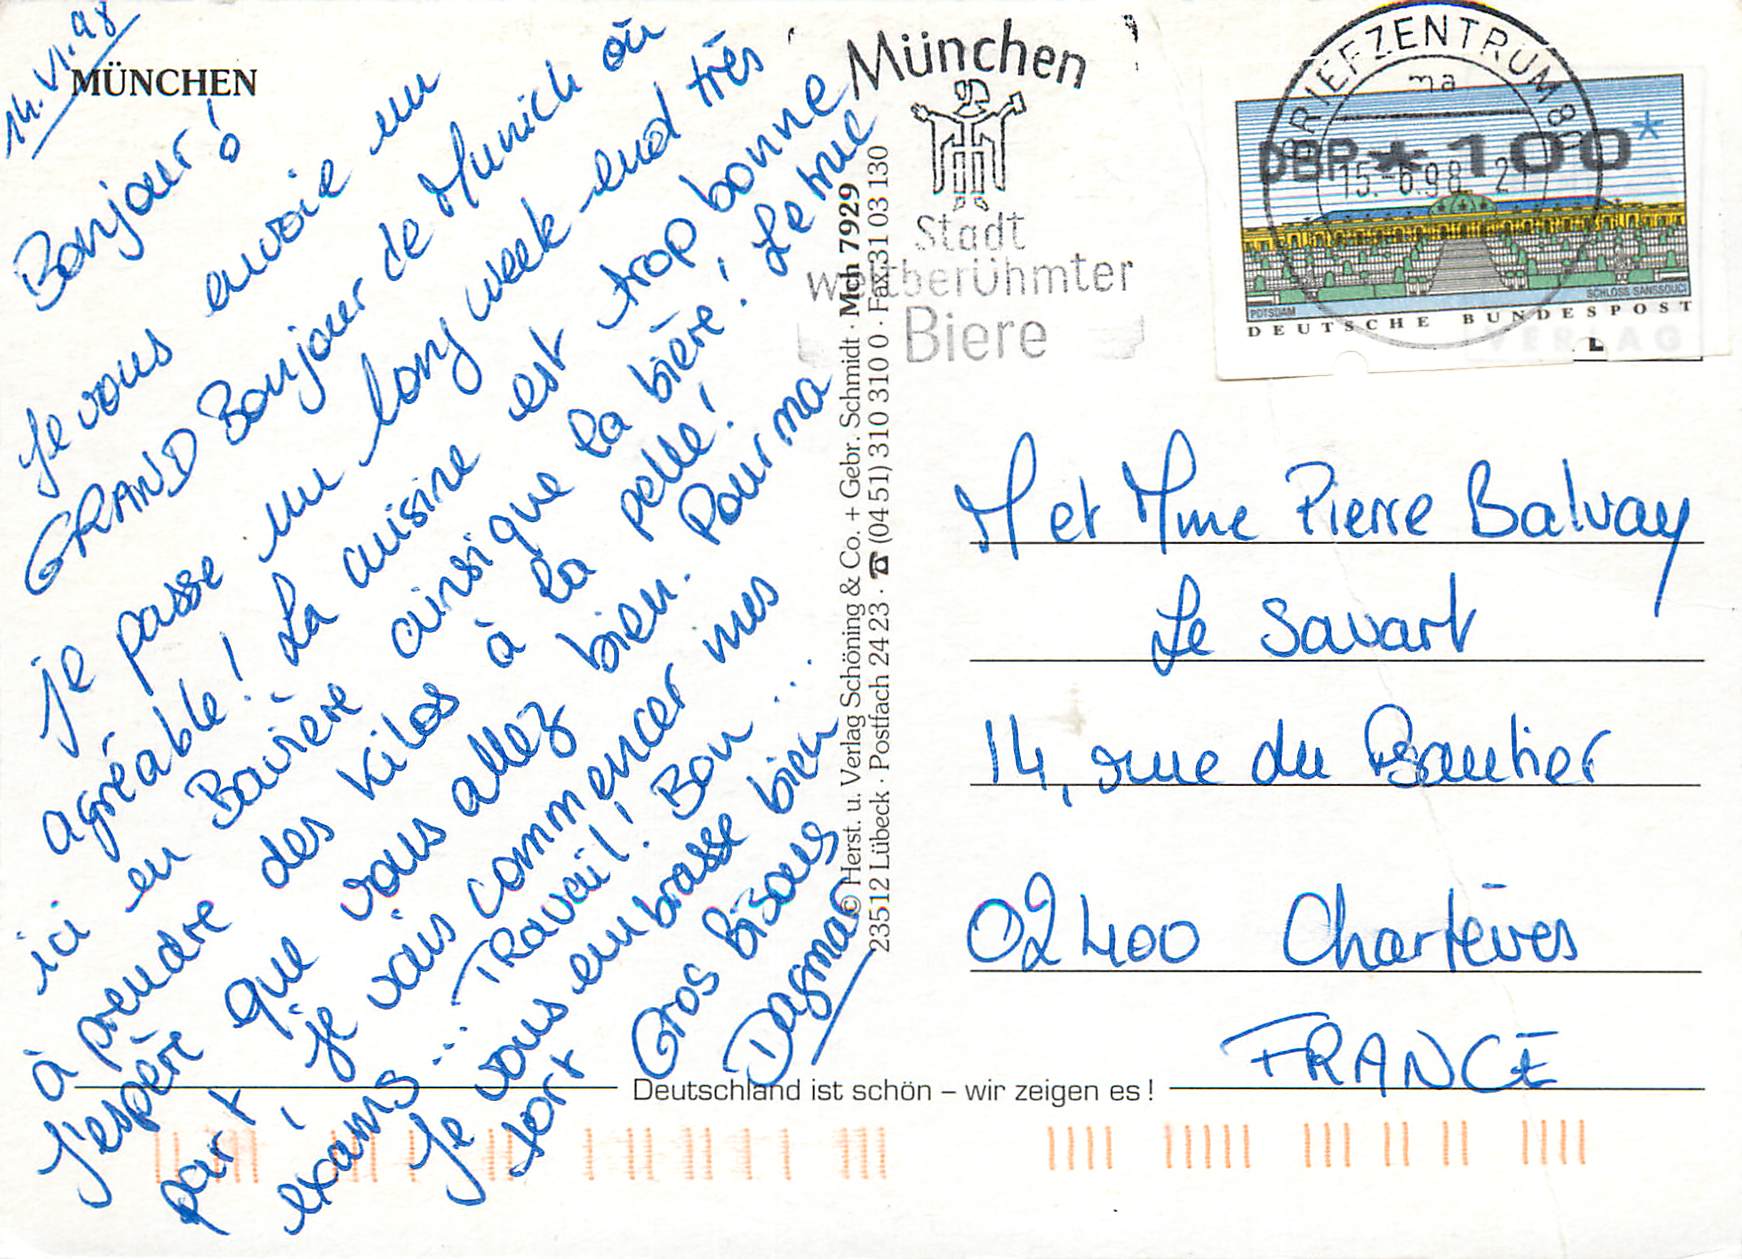 14.VI.98
MÜNCHEN
Bonjour!
Je vous envoie un
GRAND Bonjour de Munich où
je passe un long week end très
agréable! La cuisine est trop bonne
ici en Bavière ainsi que la bière! Le truc
à prendre des kilos à la pelle!
J'espère que vous allez bien. Pour ma
part, je vais commencer mes
exams... TRavail! Bon...
Je vous embrasse bien
fort
Gros bisous
Dagmar
© Herst. u. Verlag Schöning & Co. + Gebr. Schmidt · Mch 7929
23512 Lübeck · Postfach 24 23 · ☎ (04 51) 310 310 0 · Fax 31 03 130
München
Stadt
weltberühmter
Biere
BRIEFZENTRUM 80
ma
15.-6.98 21
DBP * 100 *
POTSDAM
SCHLOSS SANSSOUCI
DEUTSCHE BUNDESPOST
VERLAG
M et Mme Pierre Balvay
Le Savart
14, rue du
02400 Chartèves
FRANCE
Deutschland ist schön – wir zeigen es!